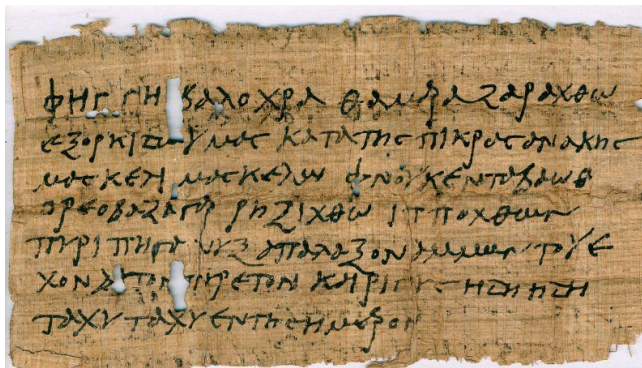 βαλοχρα θαμρα ζαραχθω
εξορκιζω υμας κατα της πικρας αναγκης
μασκελλι μασκελλω φνουκενταβαωθ
ορεοβαζαγρα ρηξιχθων ιπποχθων
πυριπηγανυξ απαλαξον αμμων τον ε
χοντα τον πυρετον και ριγος ηδη ηδη
ταχυ ταχυ εν τη σημερον